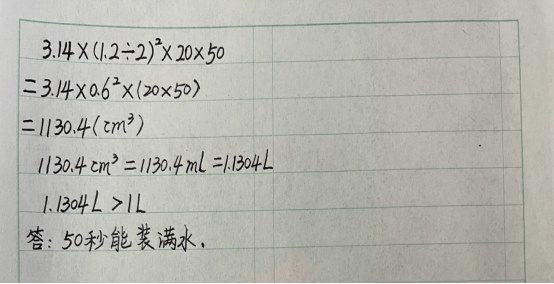 3.14×(1.2÷2)²×20×50
=3.14×0.6²×(20×50)
=1130.4(cm³)
1130.4cm³=1130.4ml=1.1304L
1.1304L>1L
答:50秒能装满水.